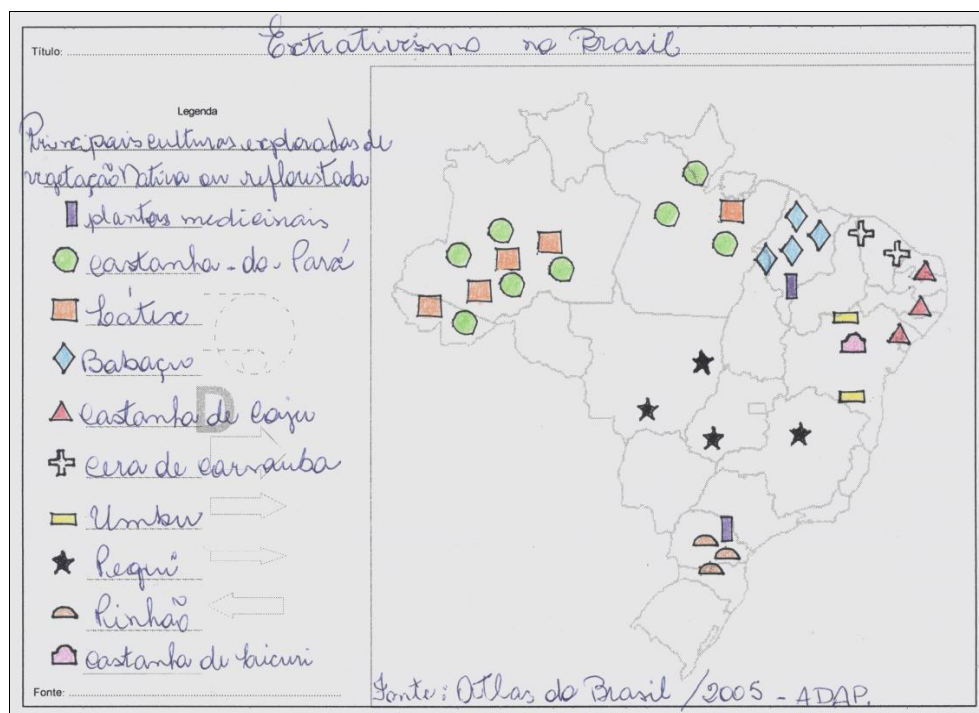 Título: Extrativismo no Brasil
Legenda
Principais culturas exploradas de
vegetação Nativa ou reflorestada
plantas medicinais
castanha-do-Pará
Látex
Babaçu
D
castanha de caju
cera de carnaúba
Umbu
Pequi
Pinhão
castanha de licuri
Fonte:
Fonte: Atlas do Brasil / 2005 - ADAP.